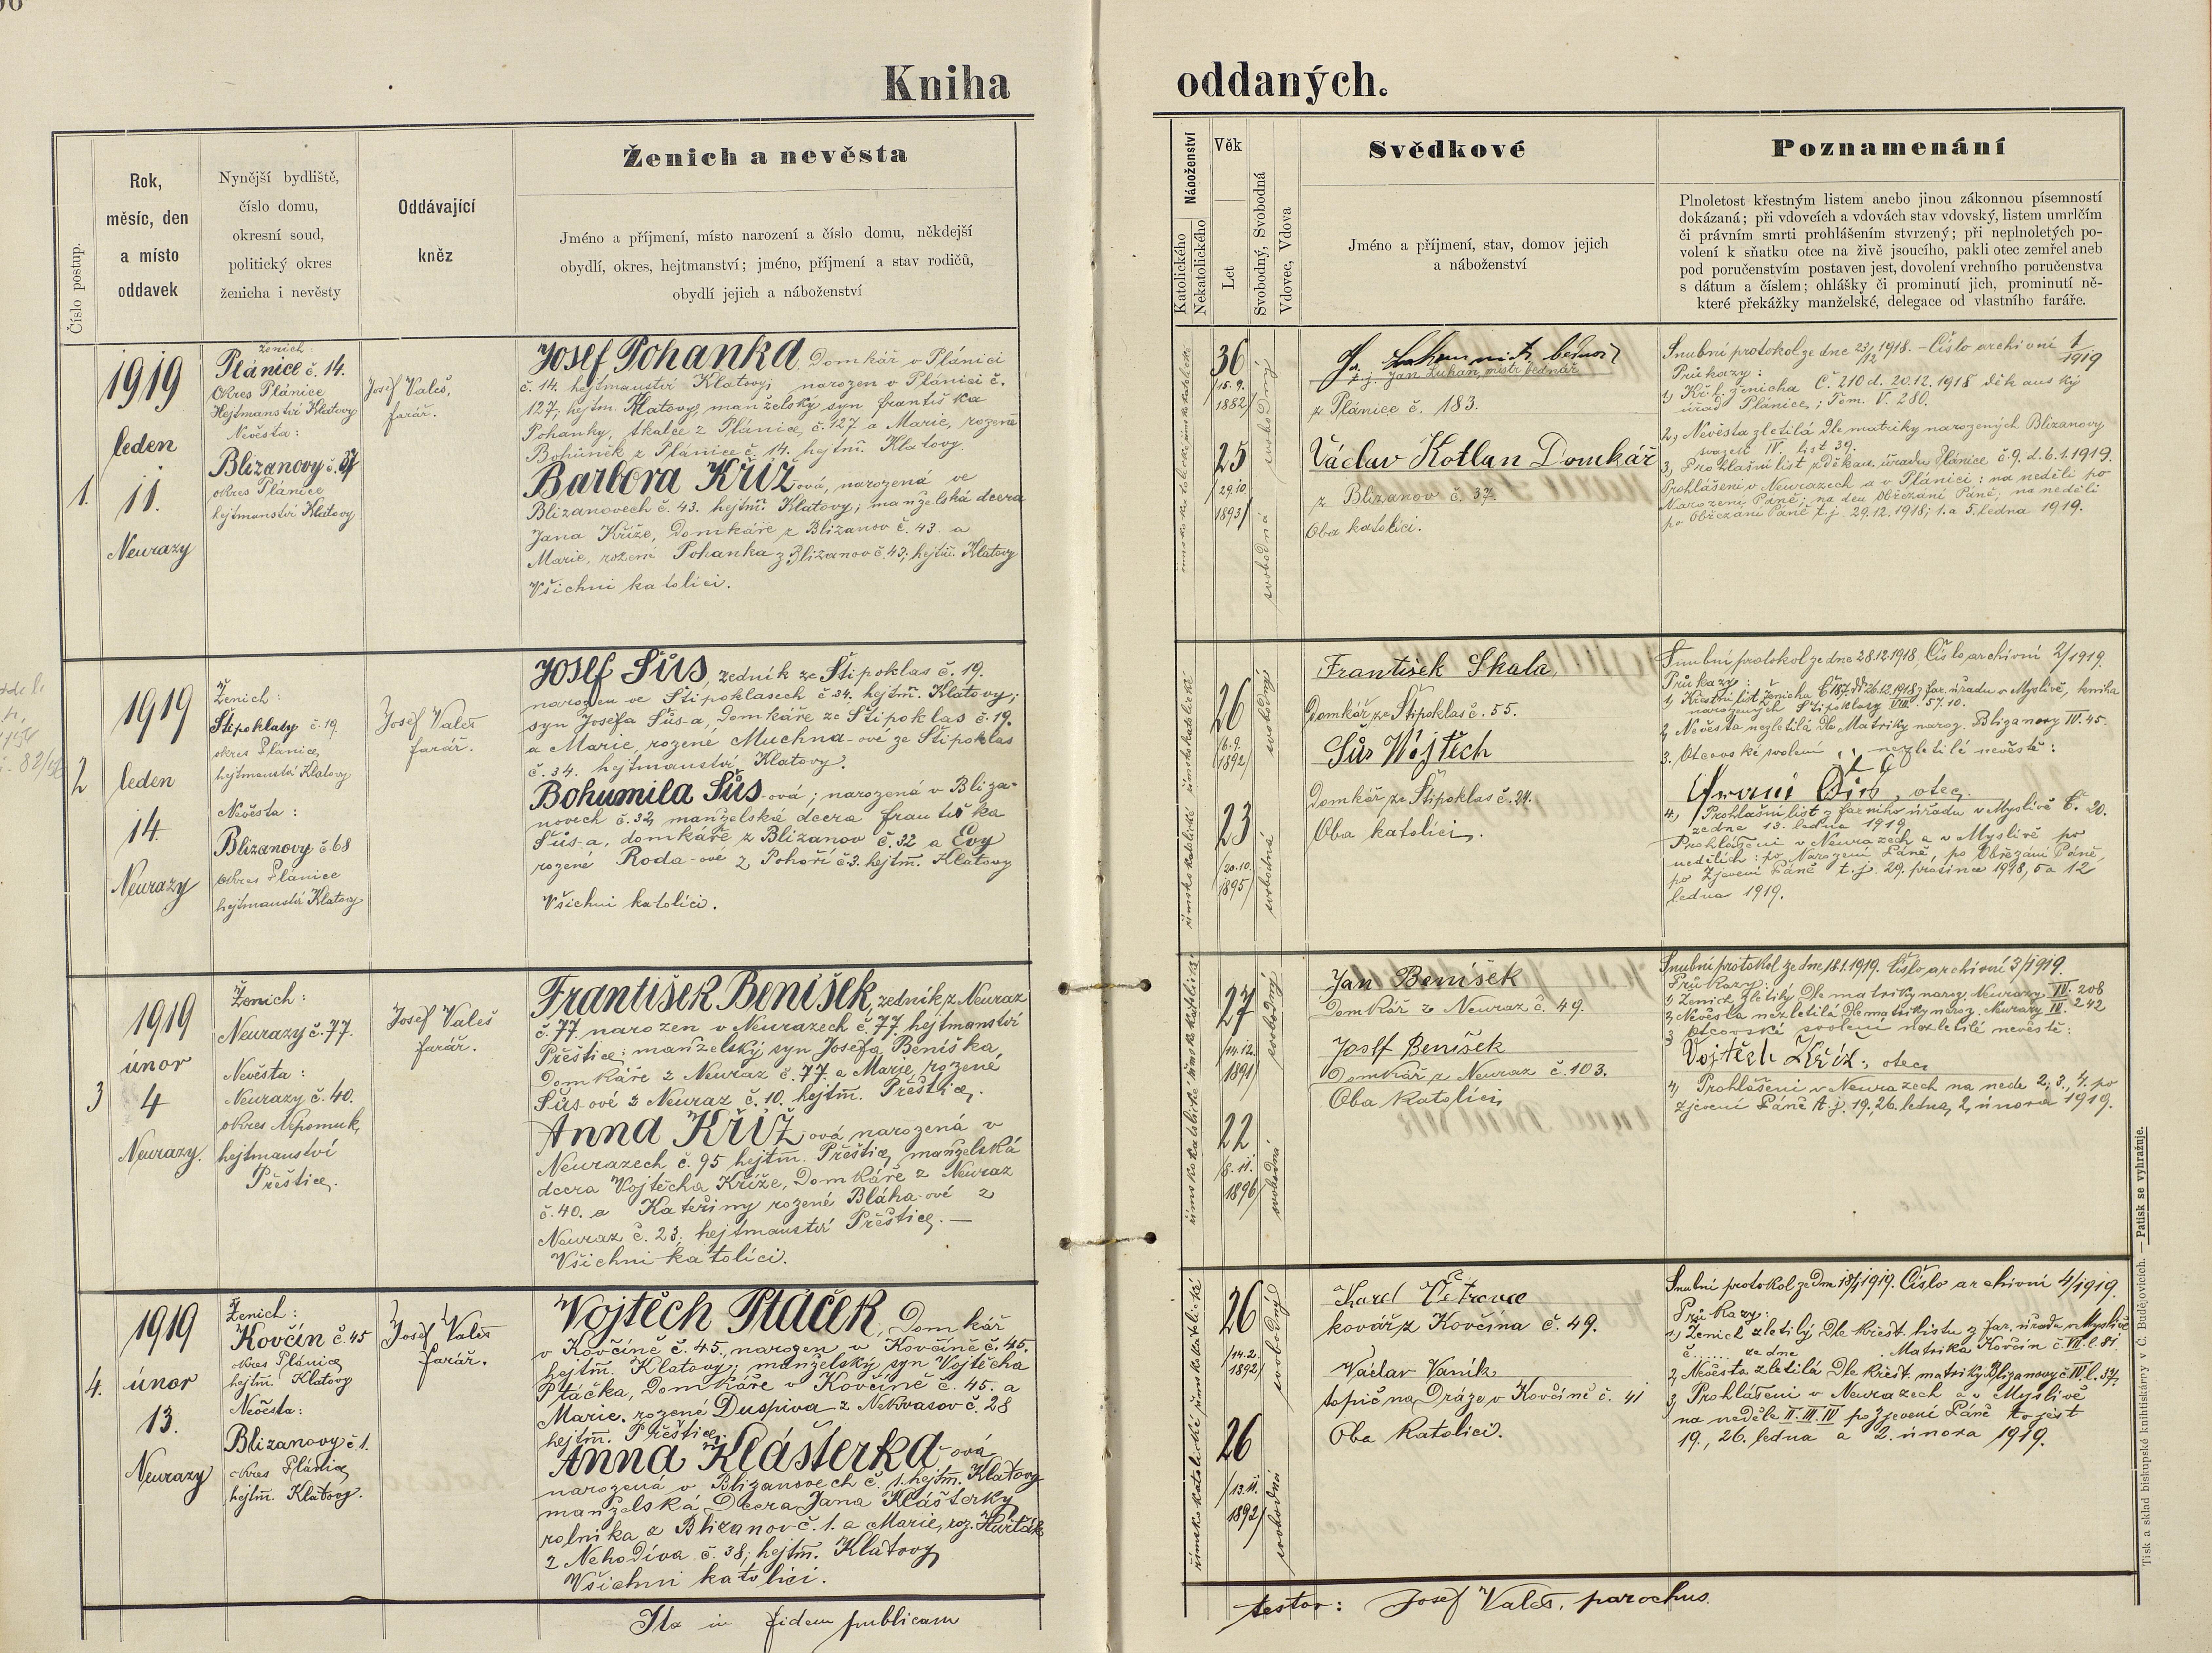 Kniha oddaných.
Číslo postup.
Rok,
měsíc, den
a místo
oddavek
Nynější bydliště,
číslo domu,
okresní soud,
politický okres
ženicha i nevěsty
Oddávající
kněz
Ženich a nevěsta
Jméno a příjmení, místo narození a číslo domu, někdejší
obydlí, okres, hejtmanství; jméno, příjmení a stav rodičů,
obydlí jejich a náboženství
Náboženství
Katolického
Nekatolického
Věk
Let
Svobodný, Svobodná
Vdovec, Vdova
Svědkové
Jméno a příjmení, stav, domov jejich
a náboženství
Poznamenání
Plnoletost křestným listem anebo jinou zákonnou písemností
dokázaná; při vdovcích a vdovách stav vdovský, listem umrlčím
či právním smrti prohlášením stvrzený; při neplnoletých po-
volení k sňatku otce na živě jsoucího, pakli otec zemřel aneb
pod poručenstvím postaven jest, dovolení vrchního poručenstva
s dátum a číslem; ohlášky či prominutí jich, prominutí ně-
které překážky manželské, delegace od vlastního faráře.
1.
1919
leden
11.
Neurazy
ženich:
Plánice č. 14.
Okres Plánice,
Hejtmanství Klatovy
Nevěsta:
Blizanovy č. 37
okres Plánice
hejtmanství Klatovy
Josef Valeš,
farář.
Josef Pohanka, Domkář v Plánici
č. 14. hejtmanství Klatovy; narozen v Plánici č.
127, hejtm. Klatovy, manželský syn Františka
Pohanky, tkalce z Plánice, č. 127 a Marie, rozené
Bohůněk z Plánice č. 14. hejtm. Klatovy.
Barbora Kříž-ová, narozená ve
Blizanovech č. 43. hejtm. Klatovy; manželská dcera
Jana Kříže, Domkáře z Blizanov č. 43. a
Marie, rození Pohanka z Blizanov č. 43; hejtm. Klatovy
Všichni katolíci.
36
15. 9.
1882
25
29.10.
1893
svobodný
svobodná
t. j. Jan Luhan, mistr bednář
z Plánice č. 183.
Václav Kotlan Domkář
z Blizanov č. 37.
Oba katolíci.
Snubní protokol ze dne 23/12 1918. - Číslo archivní 1/1919
Průkazy:
1, Kř. l. ženicha Č. 210 d. 20.12.1918 děkanský
úřad Plánice; Tom. V. 280.
2, Nevěsta zletilá dle matriky narozených Blizanovy
svazek IV. list 39.
3, Prohlašní list z děkan. úřadu Plánice č. 9. d. 6.1.1919.
Prohlášení v Neurazech a v Plánici: na neděli po
Narození Páně; na den Obřezání Páně, na neděli
po Obřezání Páně t. j. 29.12.1918; 1. a 5. ledna 1919.
2
1919
leden
14
Neurazy
Ženich:
Štipoklasy č. 19.
okres Plánice,
hejtmanství Klatovy
Nevěsta:
Blizanovy č. 68
okres Plánice
hejtmanství Klatovy
Josef Valeš
farář.
Josef Šůs, zedník ze Štipoklas č. 19.
narozen ve Štipoklasech č. 34. hejtm. Klatovy;
syn Josefa Šůs-a, Domkáře ze Štipoklas č. 19.
a Marie, rozené Muchna-ové ze Štipoklas
č. 34. hejtmanství Klatovy.
Bohumila Šůs-ová; narozená v Bliza-
novech č. 32, manželská dcera Františka
Šůs-a, domkáře z Blizanov č. 32 a Evy
rozené Roda-ové z Pohoří č. 3. hejtm. Klatovy
Všichni katolíci.
26
6. 9.
1892
23
20.10.
1895
svobodný
svobodná
František Skala,
Domkář ze Štipoklas č. 55.
Šůs Wojtěch
Domkář ze Štipoklas č. 34.
Oba katolíci.
Snubní protokol ze dne 28.12.1918. Číslo archivní 2/1919.
Průkazy:
1, Křestní list ženicha Č. 187. dto 26.12.1918 z far. úřadu v Myslivě, kniha
narozených Štipoklasy VIII. 57. 10.
2, Nevěsta nezletilá dle Matriky naroz. Blizanovy IV. 45.
3. Otcovské svolení nezletilé nevěstě:
Franc Šůs, otec.
4, Prohlašní list z farního úřadu v Myslivě č. 20.
ze dne 13. ledna 1919
Prohlášení v Neurazech a v Myslivě po
nedělích: po Narození Páně, po Obřezání Páně,
po Zjevení Páně t. j. 29. prosince 1918, 5 a 12
ledna 1919.
3
1919
únor
4
Neurazy.
Ženich:
Neurazy č. 77.
Nevěsta:
Neurazy č. 40.
okres Nepomuk,
hejtmanství
Přeštice.
Josef Valeš
farář.
František Beníšek, zedník z Neuraz
č. 77 narozen v Neurazech č. 77. hejtmanství
Přeštice; manželský syn Josefa Beníška,
Domkáře z Neuraz č. 77. a Marie, rozené
Šůs-ové z Neuraz č. 10. hejtm. Přeštice.
Anna Kříž-ová narozená v
Neurazech č. 95 hejtm. Přeštice, manželská
dcera Vojtěcha Kříže, Domkáře z Neuraz
č. 40. a Kateřiny rozené Bláha-ové z
Neuraz č. 23; hejtmanství Přeštice. —
Všichni katolíci.
27
14.12.
1891
22
8. 11.
1896
svobodný
svobodná
Jan Beníšek
Domkář z Neuraz č. 49.
Josef Beníšek
Domkář z Neuraz č. 103.
Oba Katolíci
Snubní protokol ze dne 18.1.1919. Číslo archivní 3/1919.
Průkazy:
1, Ženich zletilý dle matriky naroz. Neurazy IV. 208
2, Nevěsta nezletilá dle matriky naroz. Neurazy IV. 242
3 Otcovské svolení nezletilé nevěstě:
Vojtěch Kříž, otec
4, Prohlášení v Neurazech na nede 2. 3., 4. po
zjevení Páně t. j. 19., 26. ledna, 2. února 1919.
4.
1919
únor
13.
Neurazy
Ženich:
Kovčín č. 45
okres Plánice
hejtm. Klatovy
Nevěsta:
Blizanovy č. 1.
okres Plánice
hejtm. Klatovy.
Josef Valeš
farář.
Vojtěch Ptáček, Domkář
v Kovčíně č. 45., narozen v Kovčíně č. 45.
hejtm. Klatovy; manželský syn Vojtěcha
Ptáčka, Domkáře v Kovčíně č. 45. a
Marie, rozené Duspiva z Nekvasov č. 28
hejtm. Přeštice.
Anna Klášterka-ová
narozená v Blizanovech č. 1. hejtm. Klatovy
manželská Dcera Jana Klášterky,
rolníka z Blizanov č. 1. a Marie, roz. Huřťák
z Nehodíva č. 38; hejtm. Klatovy
Všichni katolíci.
26
14. 2.
1892
26
13.11.
1892
svobodný
svobodná
Karel Větrovec
kovář z Kovčína č. 49.
Vaclav Vaník
topič na Dráze v Kovčíně č. 41
Oba Katolíci.
Snubní protokol ze dne 18/1 1919. Číslo archivní 4/1919.
Průkazy:
1, Ženich zletilý dle křest. listu z far. úřadu v Myslivě
č. ...... ze dne Matrika Kovčín č. VII. l. 81
2, Nevěsta zletilá dle křest. matriky Blizanovy č. IV. l. 37.
3, Prohlášení v Neurazech a v Myslivě
na neděle II. III. IV po zjevení Páně to jest
19., 26. ledna a 2. února 1919.
Ita in fidem publicam
testor: Josef Valeš, parochus.
Tisk a sklad biskupské knihtiskárny v Č. Budějovicích. — Patisk se vyhražuje.